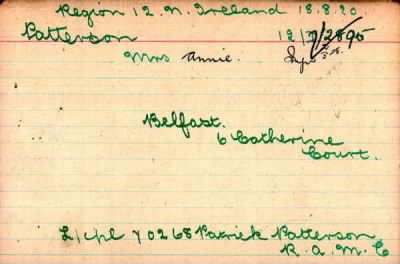 Region 12. N. Ireland 18.8.20
Patterson 12/
Mrs Annie.
Belfast.
6 Catherine
Court.
L/cpl 70268 Patrick Patterson
R.A.M.C